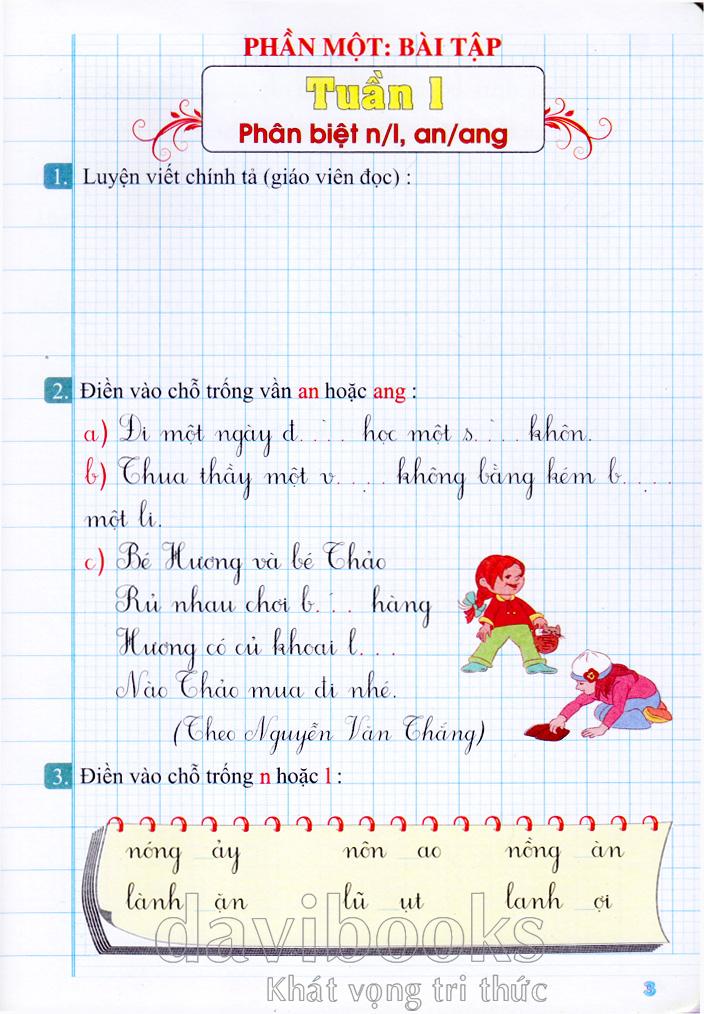 PHẦN MỘT: BÀI TẬP
Tuần 1
Phân biệt n/l, an/ang
1. Luyện viết chính tả (giáo viên đọc) :
2. Điền vào chỗ trống vần an hoặc ang :
a) Đi một ngày đ. . . . học một s. . . . khôn.
b) Thua thầy một v. . . . không bằng kém b. . . .
một li.
c) Bé Hương và bé Thảo
Rủ nhau chơi b. . . hàng
Hương có củ khoai l. . .
Nào Thảo mua đi nhé.
(Theo Nguyễn Văn Thắng)
3. Điền vào chỗ trống n hoặc l :
nóng ảy nôn ao nồng àn
lành ặn lũ ụt lanh ợi
davibooks
Khát vọng tri thức
3